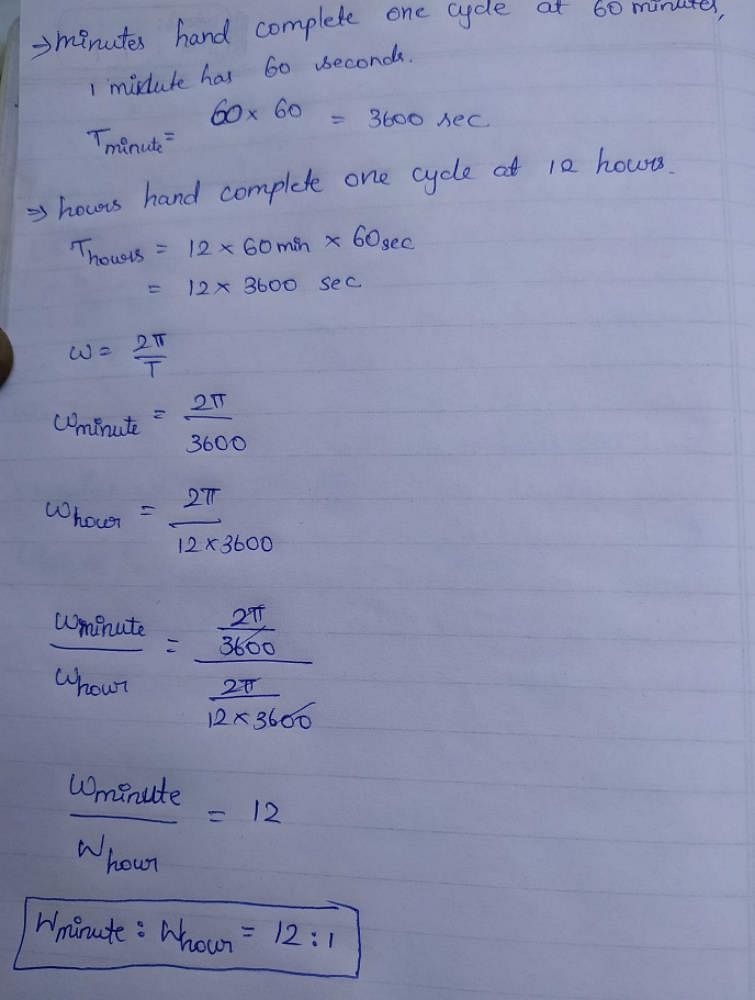 ⇒ minutes hand complete one cycle at 60 minutes,
1 minute has 60 seconds.
T_minute = 60 × 60 = 3600 sec
⇒ hours hand complete one cycle at 12 hours.
T_hours = 12 × 60 min × 60 sec
= 12 × 3600 sec
ω = 2π / T
ω_minute = 2π / 3600
ω_hour = 2π / 12 × 3600
ω_minute / ω_hour = (2π / 3600) / (2π / 12 × 3600)
ω_minute / ω_hour = 12
ω_minute : ω_hour = 12 : 1